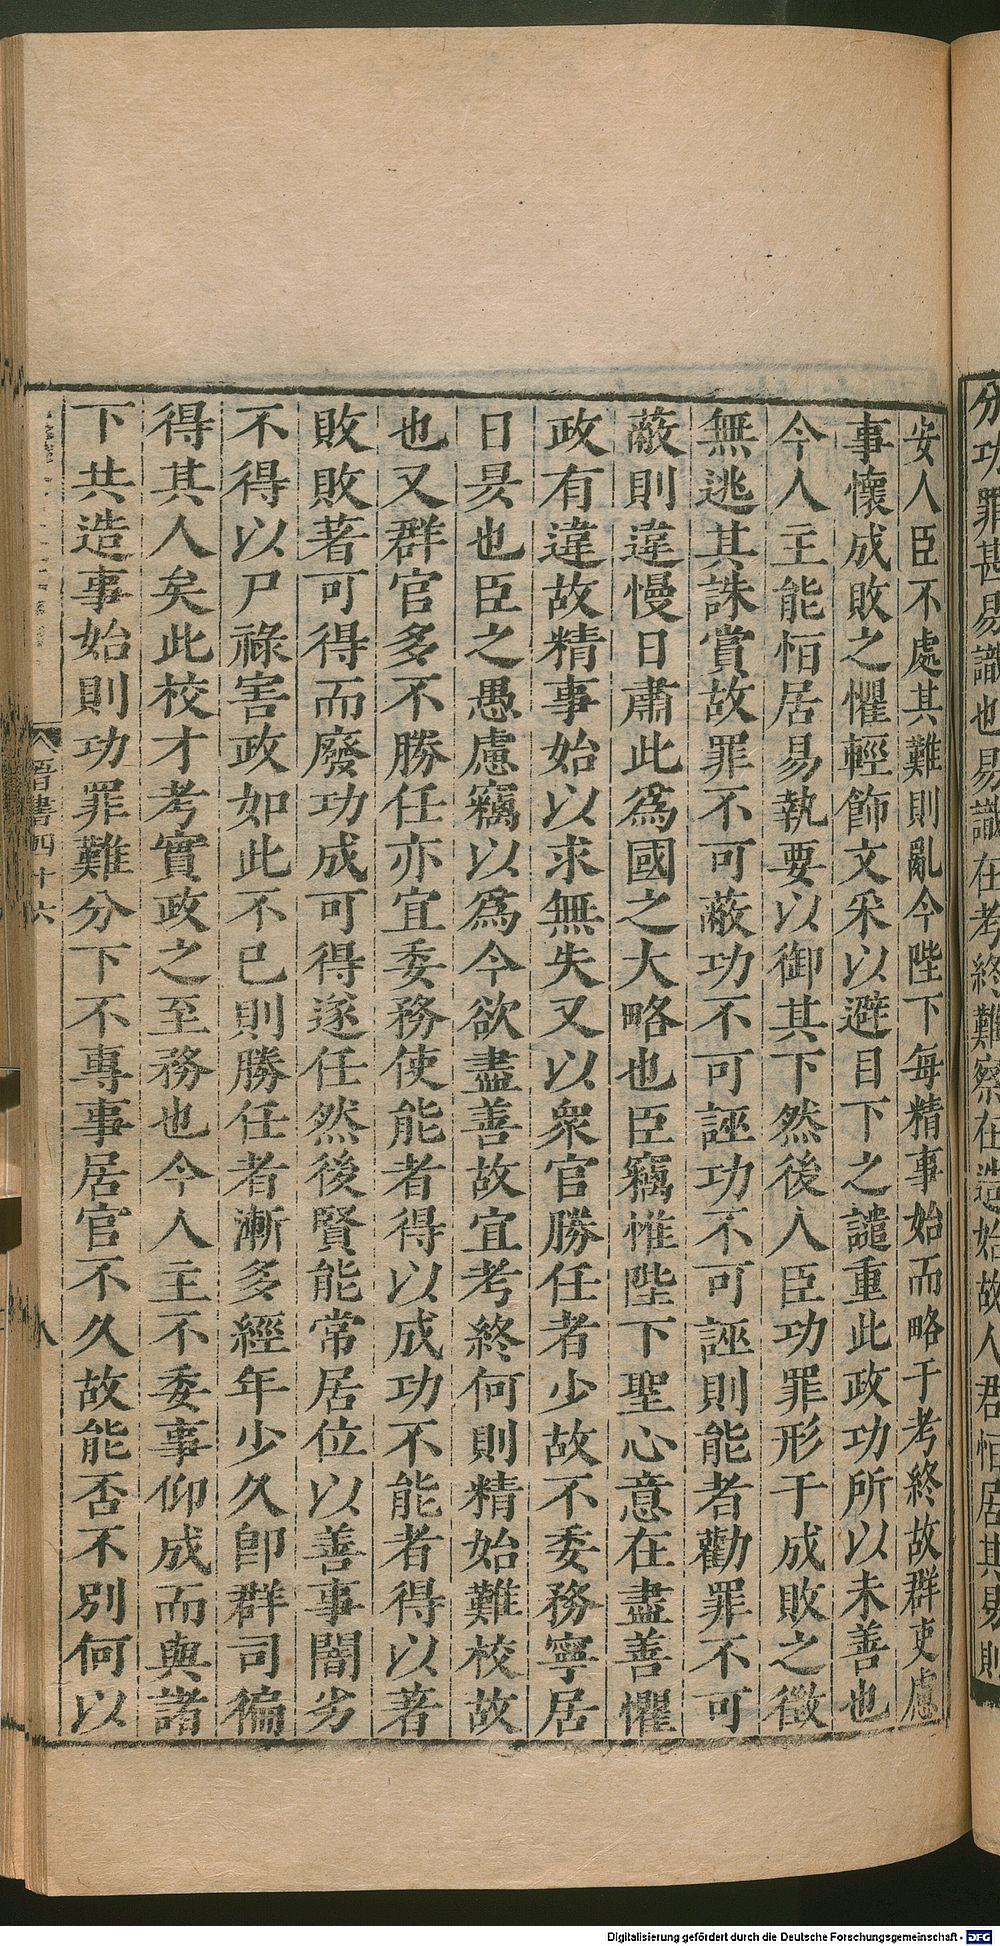 分功罪甚易識也易識在考終難察在造始故人君恒居其易則
安人臣不處其難則亂今陛下每精事始而略于考終故群吏慮
事懷成敗之懼輕飾文采以避目下之譴重此政功所以未善也
今人主能恒居易執要以御其下然後人臣功罪形于成敗之徵
無逃其誅賞故罪不可蔽功不可誣功不可誣則能者勸罪不可
蔽則違慢日肅此為國之大略也臣竊惟陛下聖心意在盡善懼
政有違故精事始以求無失又以衆官勝任者少故不委務寧居
日昃也臣之愚慮竊以為今欲盡善故宜考終何則精始難校故
也又群官多不勝任亦宜委務使能者得以成功不能者得以著
敗敗著可得而廢功成可得遂任然後賢能常居位以善事闇劣
不得以尸祿害政如此不已則勝任者漸多經年少久卽群司徧
得其人矣此校才考實政之至務也今人主不委事仰成而與諸
下共造事始則功罪難分下不專事居官不久故能否不別何以
晋書四十六
八
Digitalisierung gefördert durch die Deutsche Forschungsgemeinschaft - DFG